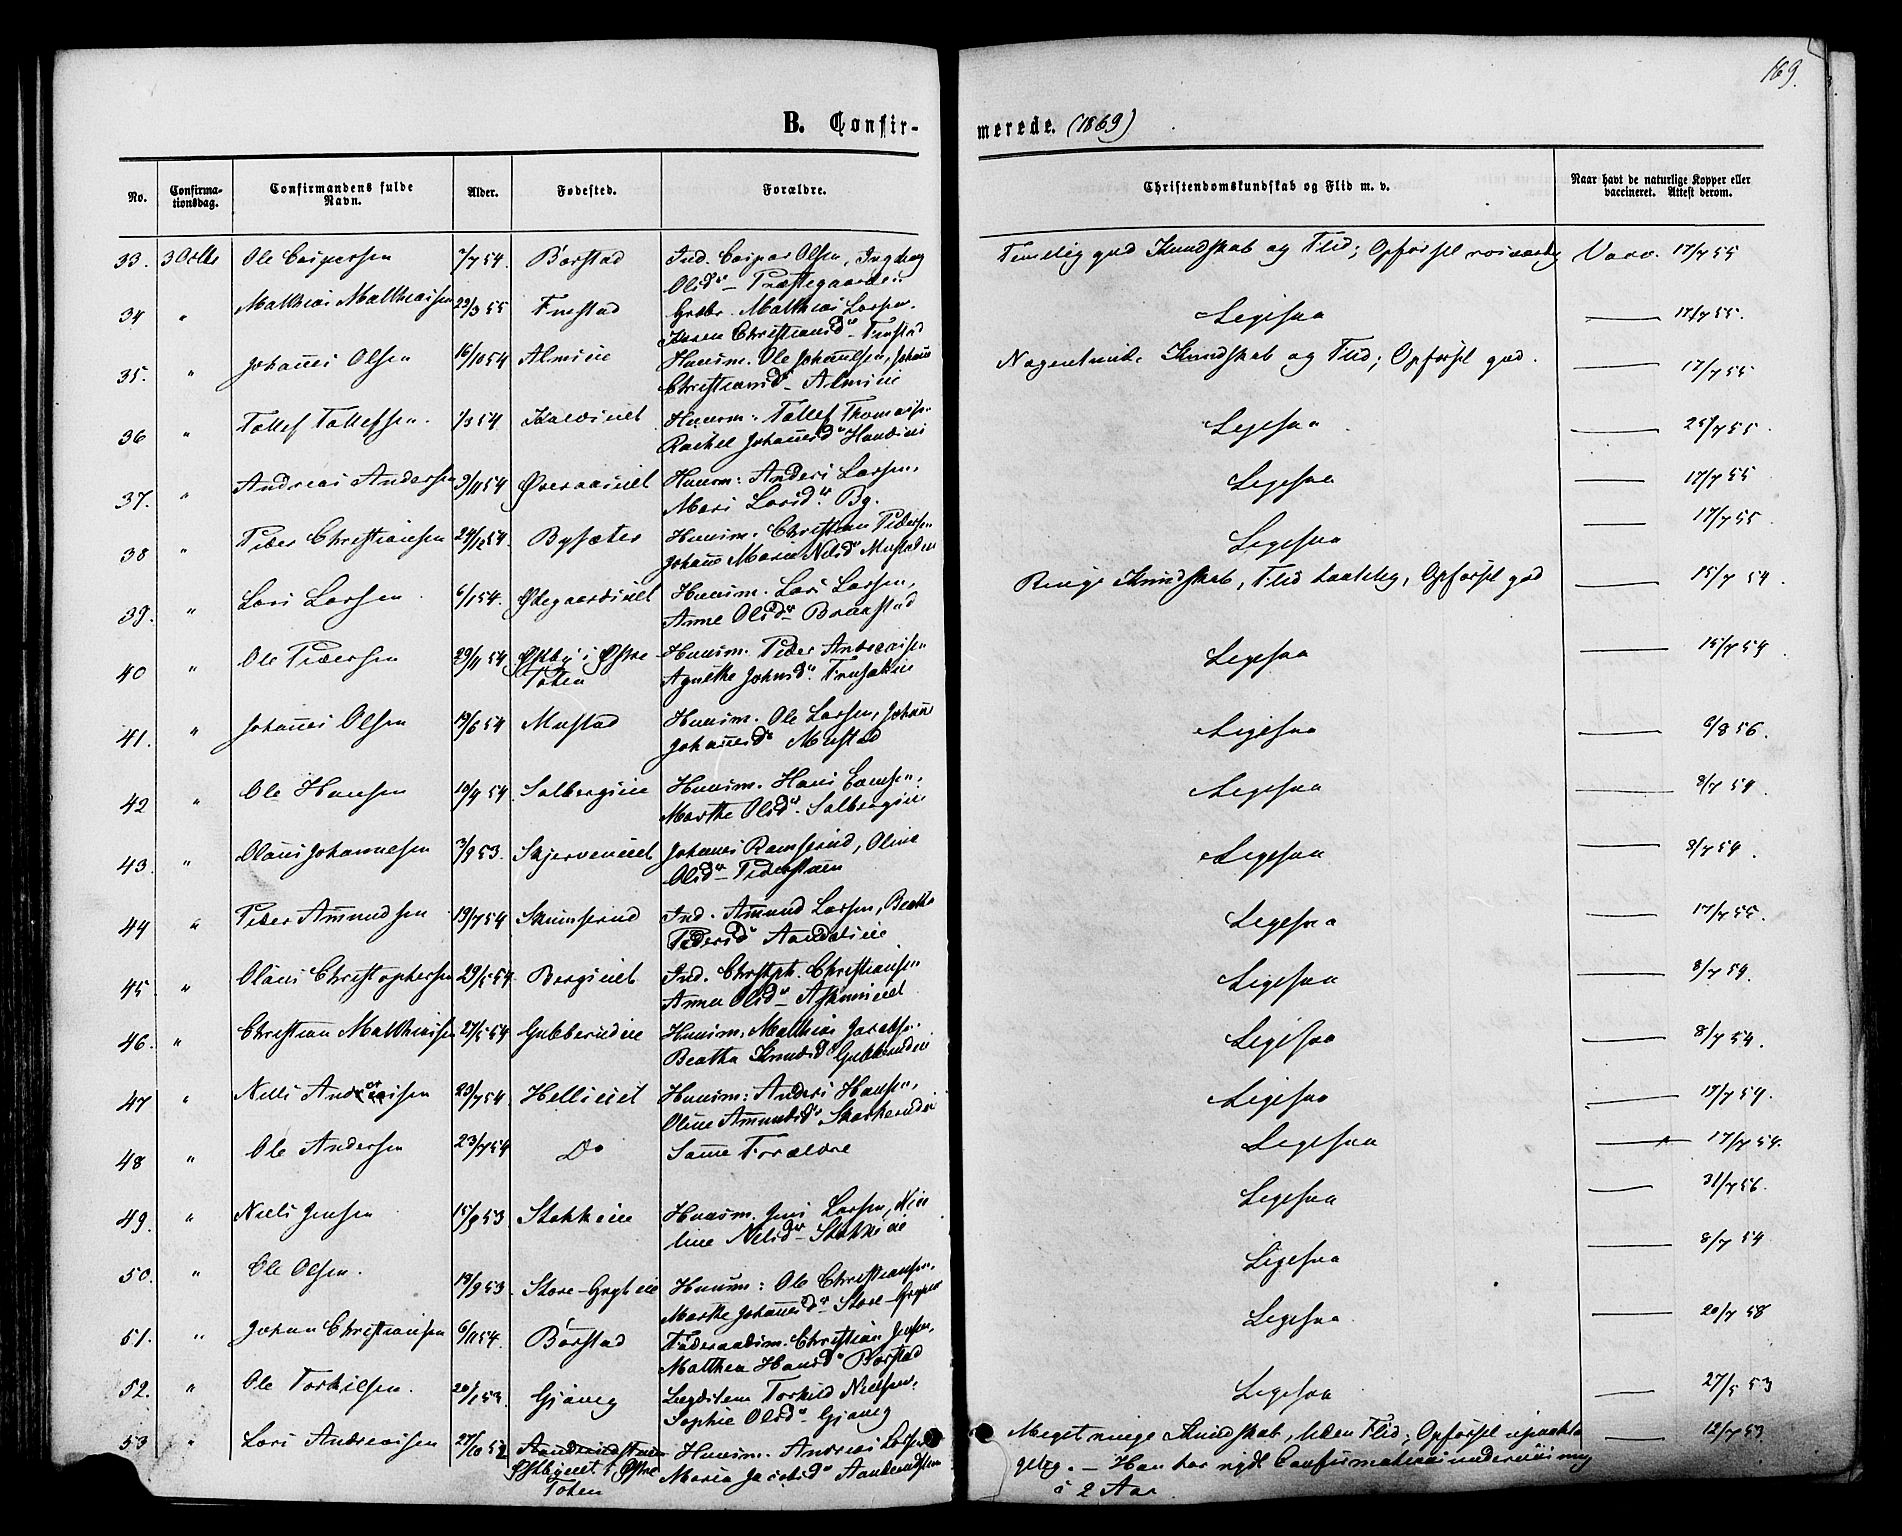 169.
B. Confir-
merede. (1869)
No.
Confirma-
tionsdag.
Confirmandens fulde
Navn.
Alder.
Fødested.
Forældre.
Christendomskundskab og Flid m. v.
Naar havt de naturlige Kopper eller
vaccineret. Attest derom.
33. 3 Octbr Ole Caspersen 7/7 54. Børstad Ind. Caspar Olsen, Ingeborg
Olsd. Præstegaardsei. Temmelig god Kundskab og Flid; Opførsel rosværdig Vacc. 17/7 55
34 " Matthias Matthiassen 29/3 55 Finstad Grdbr. Matthias Larsen.
Karen Christiansdr Finstad Ligesaa 17/7 55.
35. " Johannes Olsen 16/10 54 Almeie Huusm. Ole Johannesen, Johane
Christiansd. Almeie Nogenlunde Kundskab og Flid; Opførsel god. 17/7 55
36 " Tollef Tollefsen. 1/3 54 Huusm: Tollef Thomass.
Rachel Johannesdr Ligesaa 25/7 55.
37. " Andreas Andersen 9/11 54 Øveraaseiet Huusm: Anders Larsen,
Mari Larsdr By. Ligesaa 17/7 55
38 " Peder Christiansen 24/12 54. Bysæter Huusm. Christian Pedersen
Johane Marie Nilsdr Mustadeie Ligesaa 17/7 55
39. " Lars Larsen. 6/1 54. Ødegaardseiet Huusm. Lars Larsen,
Anne Olsdr Braastad Ringe Kundskab, Flid taalelig, Opførsel god 15/7 54.
40 " Ole Pedersen 29/11 54 Østby i Østre
Toten Huusm. Peder Andreassen
Agnethe Johnsdr Ligesaa 15/7 54
41. " Johannes Olsen 19/6 54 Mustad Huusm. Ole Larsen, Johane
Johannesdr Mustad Ligesaa 6/8 56.
42 " Ole Hansen 10/4 54 Solbergeie Huusm. Hans
Marthe Olsdr. Solbergeie Ligesaa 8/7 54.
43. " Olaus Johannesen 3/9 53. Skjerveneiet Johannes Ramsrud, Oline
Olsdr Ligesaa 8/7 54.
44 " Peder Amundsen 19/7 54 Skumsrud Ind. Amund Larsen, Beathe
Pedersdr Aandalseie Ligesaa 17/7 55.
45. " Olaus Christophersen 29/5 54 Bergseiet Ind. Christph. Christiansen
Anne Olsdr Ligesaa 8/7 54.
46. " Christian Matthiassen 27/5 54 Gubberudeie Huusm. Mathias Jacobsen.
Beatha Knudsdr Gubberudeie Ligesaa 8/7 54.
47 " Nells Andreassen 23/7 54 Hellieiet Huusm: Anders Hansen,
Oline Amundsdr Skarkerudeie Ligesaa 17/7 54.
48 " Ole Andersen 23/7 54 Do Samme Forældre Ligesaa 17/7 54.
49. " Niels Jensen 15/9 53 Stokkeeie Huusm. Jens Larsen, Niko
line Nilsdr Stokkeeie Ligesaa 31/7 56.
50. " Ole Olsen. 19/9 53 Huusm: Ole Christiansen,
Marthe Johannesdr Ligesaa 8/7 54
51. " Johan Christiansen 6/11 54. Børstad Føderaadsm. Christian Jensen,
Matthea Hansdr Børstad Ligesaa. 20/7 58
52. " Ole Torkilsen. 20/1 53. Gjøvig Lægdslem Torkild Nielsen,
Sophie Olsdr Gjøvig Ligesaa 27/5 53
53 " Lars Andreassen 27/10 52 Østbyeiet i Østre
Toten Huusm. Andreas Larsen
Maria Jacobsdr Meget ringe Kundskab, liden Flid; Opførsel upaakla
gelig. — Han har nydt Confirmationsunderviisning 12/7 53
i 2 Aar